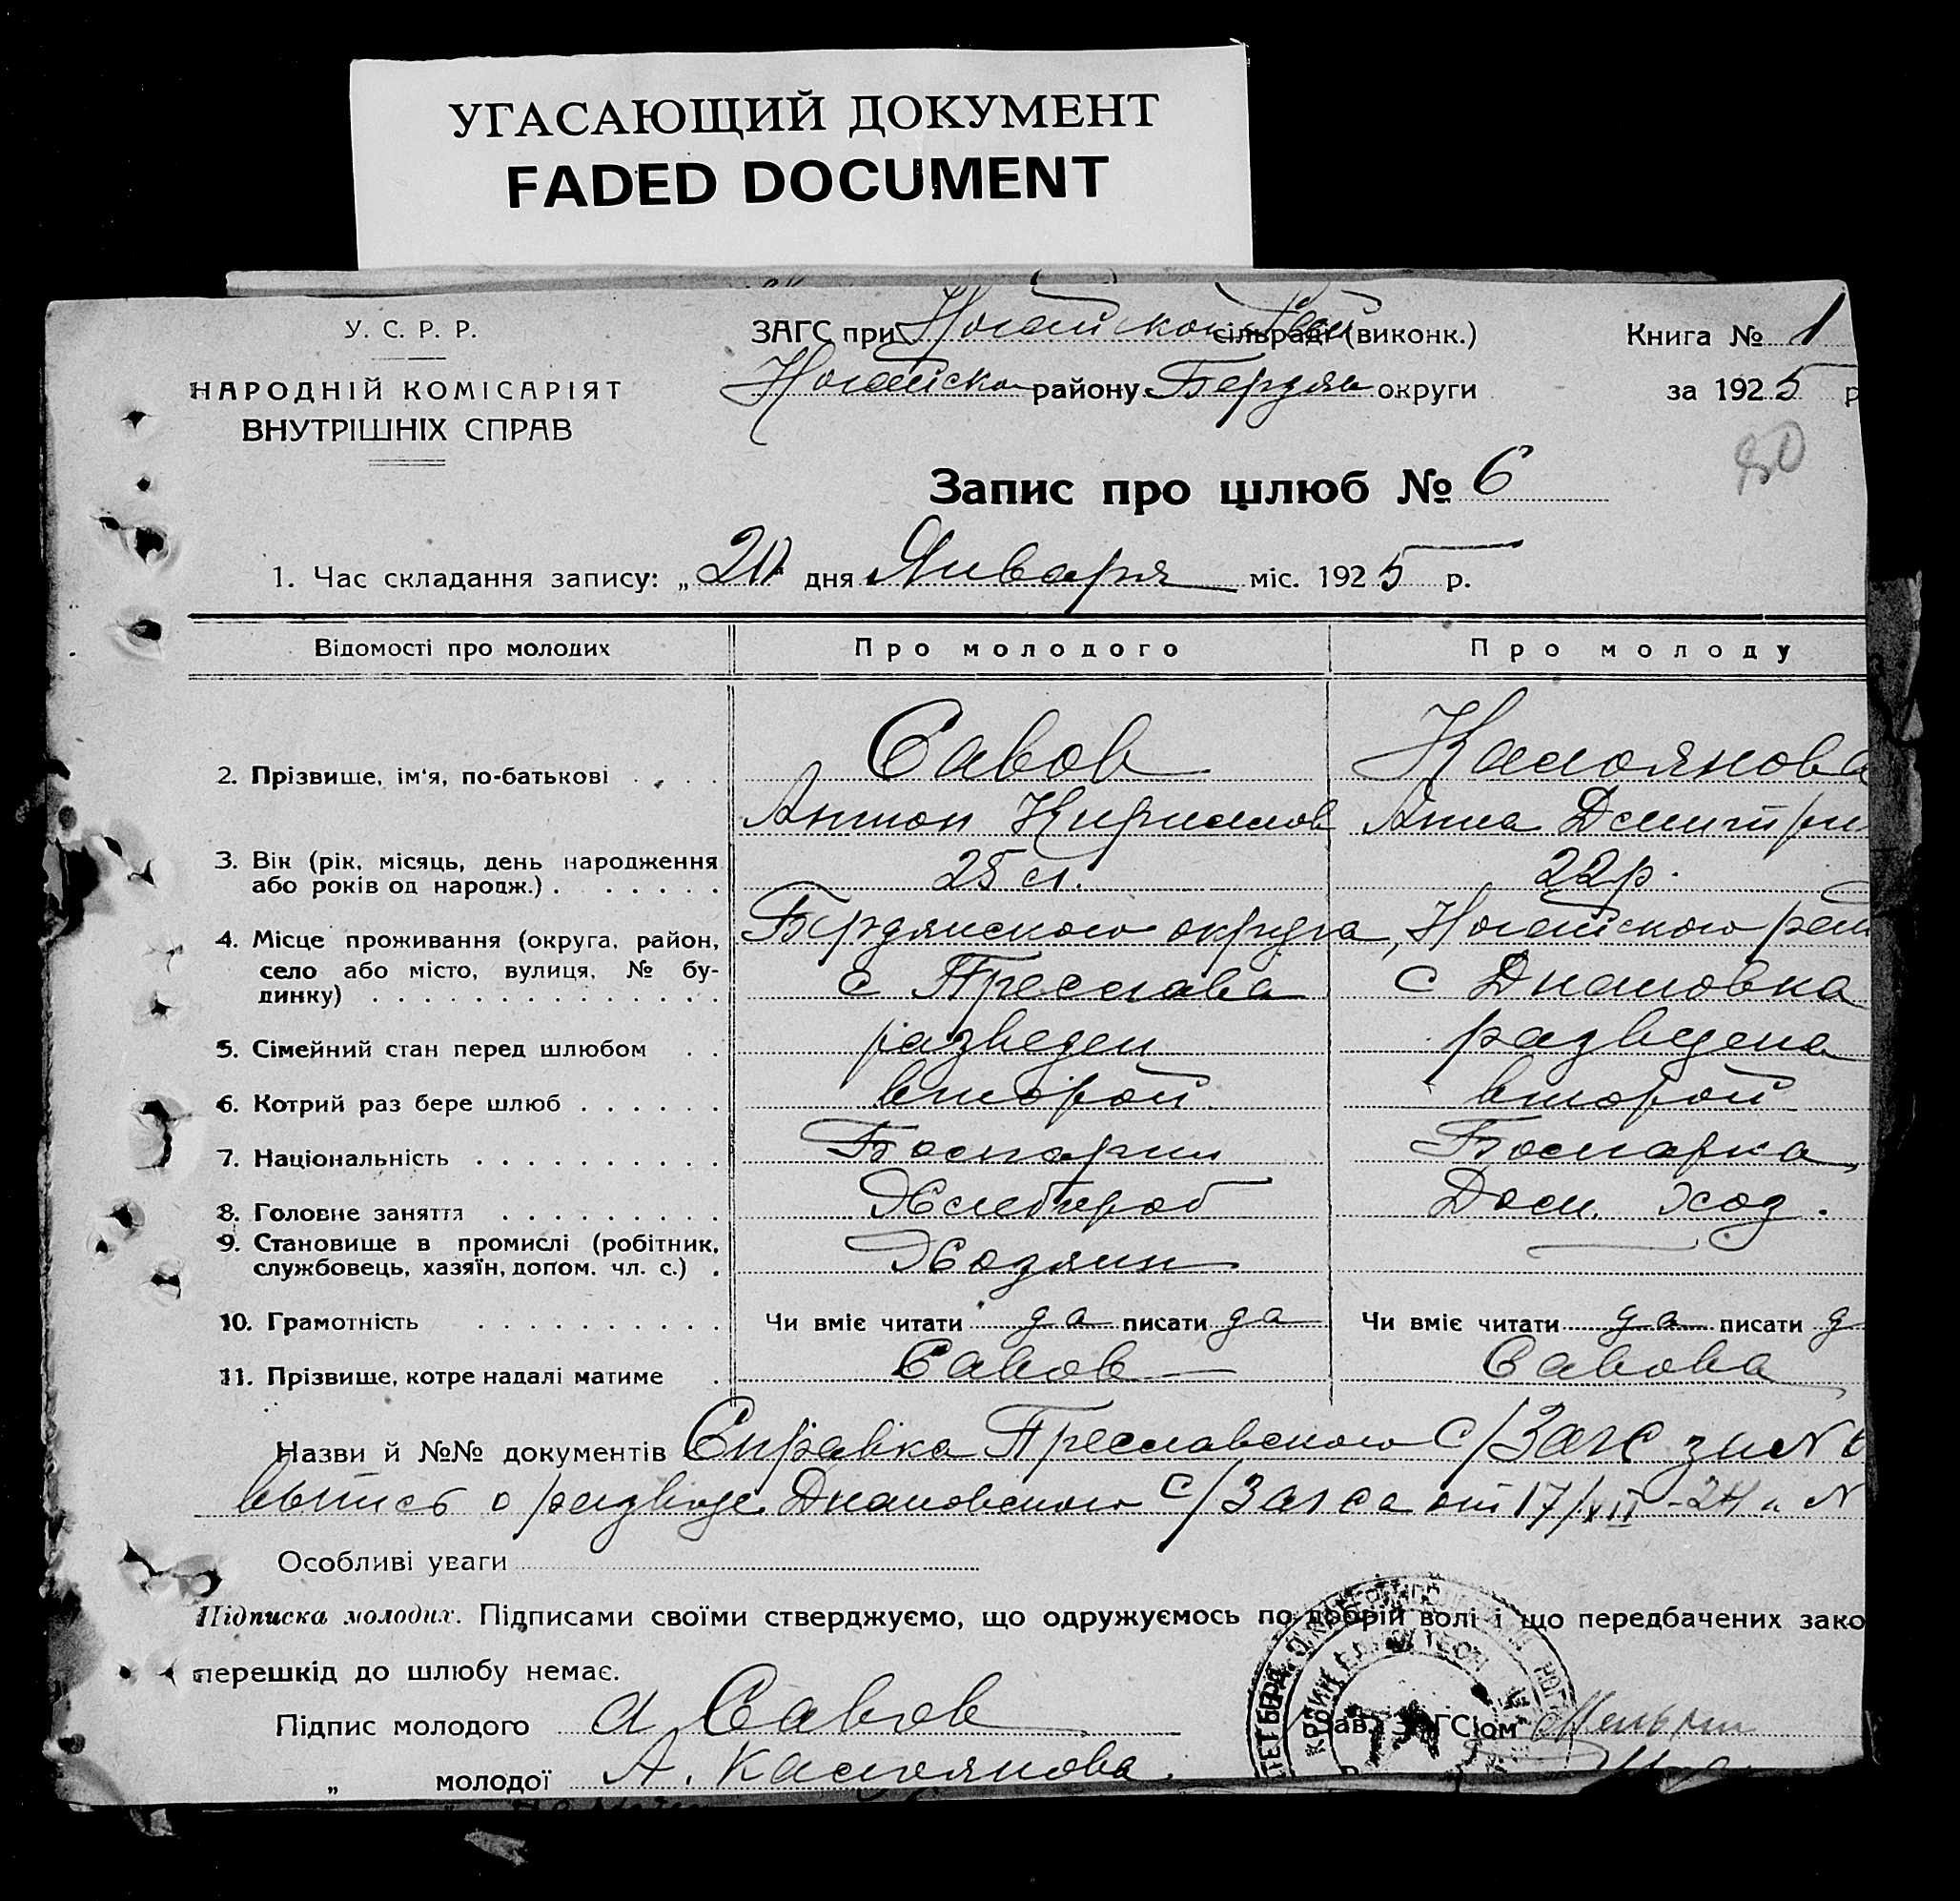 УГАСАЮЩИЙ ДОКУМЕНТ
FADED DOCUMENT
У. С. Р. Р.
НАРОДНІЙ КОМІСАРІЯТ
ВНУТРІШНІХ СПРАВ
ЗАГС при Ногайском сільраді (виконк.)
Ногайско району Бердян округи
Книга № 1
за 1925 р
80
Запис про шлюб № 6
1. Час складання запису: „ дня Января міс. 1925 р.
Відомості про молодих Про молодого Про молоду
2. Прізвище, ім'я, по-батькові Савов Калоянова
Антон Кириллов Анна Дмитри
3. Вік (рік, місяць, день народження 25 л. 22 р.
або років од народж.)
4. Місце проживання (округа, район, Бердянского округа, Ногайского рай
село або місто, вулиця, № бу- с Преслава с Диановка
динку)
5. Сімейний стан перед шлюбом разведен разведена
6. Котрий раз бере шлюб второй второй
7. Національність Болгарин Болгарка
8. Головне заняття Хлебороб Дом. хоз.
9. Становище в промислі (робітник, Хозяин —
службовець, хазяїн, допом. чл. с.)
10. Грамотність Чи вміє читати да писати да Чи вміє читати да писати д
11. Прізвище, котре надалі матиме Савов — Савова
Назви й №№ документів Справка Преславского С/Загс за №
выпись о разводе Диановского С/Загса от 17/XII-24 № 
Особливі уваги
Підписка молодих. Підписами своїми стверджуємо, що одружуємось по добрій волі і що передбачених зако
перешкід до шлюбу немає.
Підпис молодого А Савов
Зав. ЗАГС'ом
„ молодої А. Калоянова